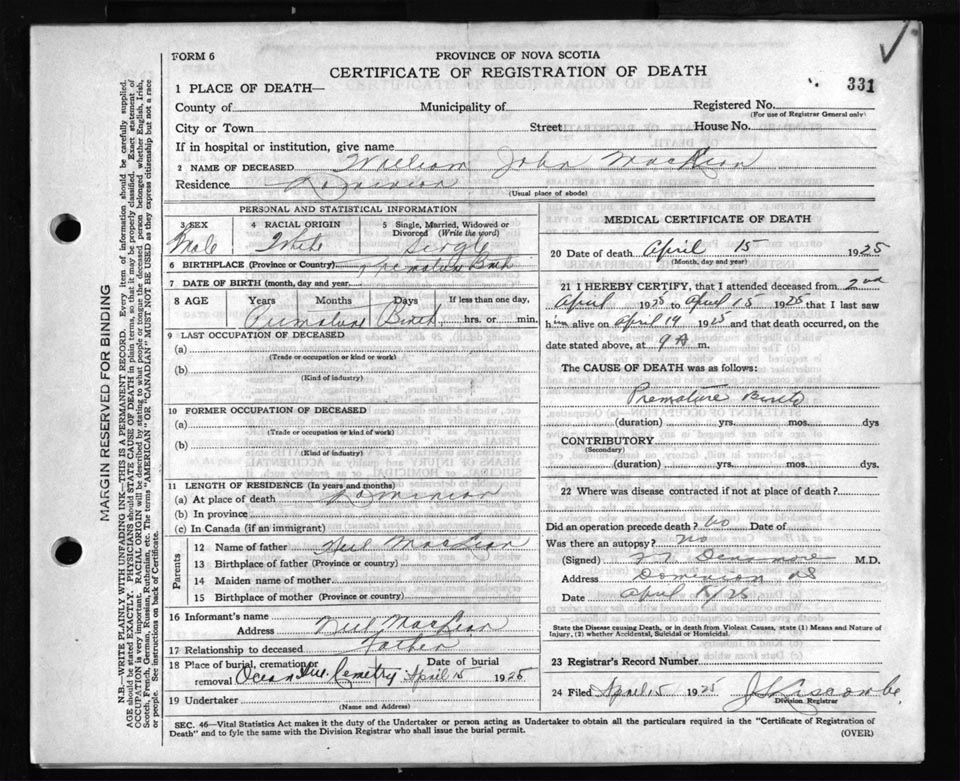 FORM 6
PROVINCE OF NOVA SCOTIA
CERTIFICATE OF REGISTRATION OF DEATH
331
1 PLACE OF DEATH—
County of Municipality of Registered No.
(For use of Registrar General only)
City or Town Street House No.
If in hospital or institution, give name
2 NAME OF DECEASED William John MacLean
Residence Dominion
(Usual place of abode)
PERSONAL AND STATISTICAL INFORMATION
3 SEX 4 RACIAL ORIGIN 5 Single, Married, Widowed or Divorced (Write the word)
Male White Single
6 BIRTHPLACE (Province or Country) Premature Birth
7 DATE OF BIRTH (month, day and year)
8 AGE Years Months Days If less than one day,
Premature Birth hrs. or min.
9 LAST OCCUPATION OF DECEASED
(a)
(Trade or occupation or kind or work)
(b)
(Kind of industry)
10 FORMER OCCUPATION OF DECEASED
(a)
(Trade or occupation or kind of work)
(b)
(Kind of industry)
11 LENGTH OF RESIDENCE (In years and months)
(a) At place of death Dominion
(b) In province
(c) In Canada (if an immigrant)
Parents
12 Name of father Neil MacLean
13 Birthplace of father (Province or country)
14 Maiden name of mother
15 Birthplace of mother (Province or country)
16 Informant's name
Address Neil MacLean
17 Relationship to deceased Father
18 Place of burial, cremation or removal Ocean Ave. Cemetry Date of burial April 15 1925
19 Undertaker
(Name and Address)
MEDICAL CERTIFICATE OF DEATH
20 Date of death April 15 1925
(Month, day and year)
21 I HEREBY CERTIFY, that I attended deceased from 2nd
April 1925 to April 15 1925 that I last saw
him alive on April 14 1925 and that death occurred, on the
date stated above, at 9 A m.
The CAUSE OF DEATH was as follows:
Premature Birth
(duration) yrs. mos. dys
CONTRIBUTORY
(Secondary)
(duration) yrs. mos. dys.
22 Where was disease contracted if not at place of death?
Did an operation precede death? No Date of
Was there an autopsy? No
(Signed) Densmore M.D.
Address Dominion NS
Date April 15/25
State the Disease causing Death, or in death from Violent Causes, state (1) Means and Nature of
Injury, (2) whether Accidental, Suicidal or Homicidal.
23 Registrar's Record Number
24 Filed April 15 1925
Division Registrar
SEC. 46—Vital Statistics Act makes it the duty of the Undertaker or person acting as Undertaker to obtain all the particulars required in the "Certificate of Registration of
Death" and to fyle the same with the Division Registrar who shall issue the burial permit. (OVER)
MARGIN RESERVED FOR BINDING
N.B.—WRITE PLAINLY WITH UNFADING INK—THIS IS A PERMANENT RECORD. Every item of information should be carefully supplied.
AGE should be stated EXACTLY. PHYSICIANS should STATE CAUSE OF DEATH in plain terms, so that it may be properly classified. Exact statement of
OCCUPATION is very important. RACIAL ORIGIN will be described by stating to what people or tongue the deceased person belonged whether English, Irish,
Scotch, French, German, Russian, Ruthenian, etc. The terms "AMERICAN" OR "CANADIAN" MUST NOT BE USED as they express citizenship but not a race
or people. See instructions on back of Certificate.